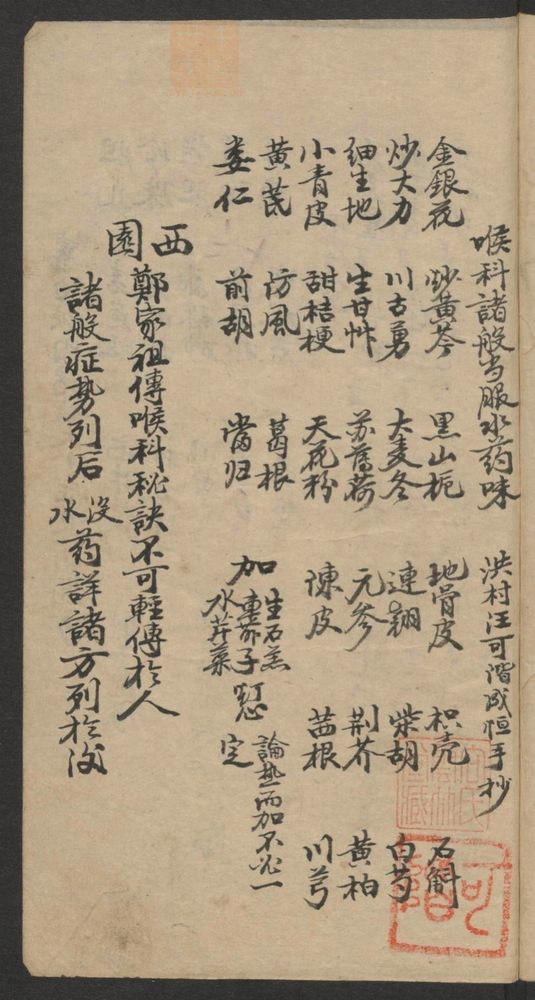 喉科諸般当服水药味 洪村汪可階成恒手抄
金銀花 炒黄芩 黑山栀 地骨皮 枳壳 石斛
炒大力 川古勇 大麦冬 連翹 柴胡 白芍
细生地 生甘艸 苏薄荷 元参 荆芥 黄柏
小青皮 甜桔梗 天花粉 陳皮 茜根 川芎
黄芪 防風 葛根 加 生石羔 車前子 水芹菜 論熱而加不必一定
蒌仁 前胡 當归
西園 鄭家祖傳喉科秘訣不可輕傳於人
諸般症势列后 水药詳諸方列於后